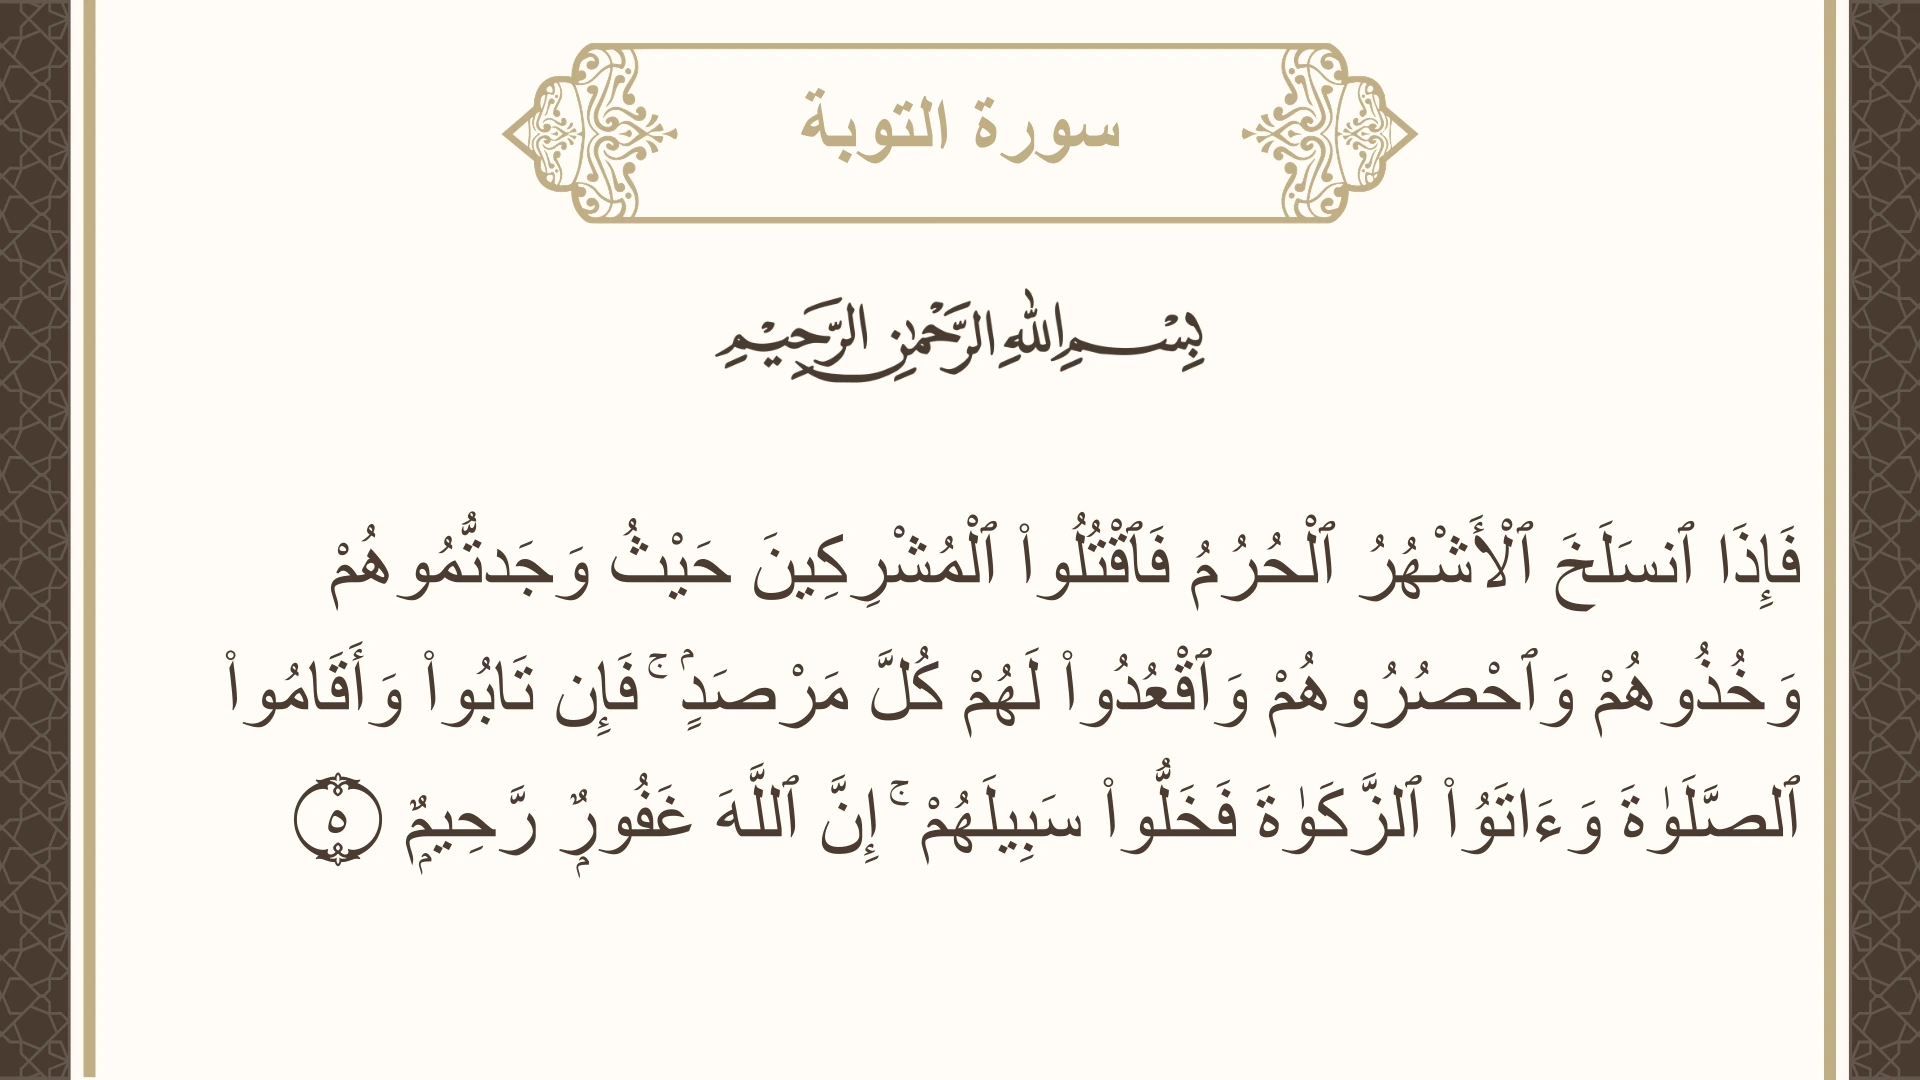 سورة التوبة
بِسْمِ اللهِ الرَّحْمٰنِ الرَّحِيْمِ
فَإِذَا ٱنسَلَخَ ٱلْأَشْهُرُ ٱلْحُرُمُ فَٱقْتُلُوا۟ ٱلْمُشْرِكِينَ حَيْثُ وَجَدتُّمُوهُمْ
وَخُذُوهُمْ وَٱحْصُرُوهُمْ وَٱقْعُدُوا۟ لَهُمْ كُلَّ مَرْصَدٍۢ ۚ فَإِن تَابُوا۟ وَأَقَامُوا۟
ٱلصَّلَوٰةَ وَءَاتَوُا۟ ٱلزَّكَوٰةَ فَخَلُّوا۟ سَبِيلَهُمْ ۚ إِنَّ ٱللَّهَ غَفُورٌۭ رَّحِيمٌۭ ٥